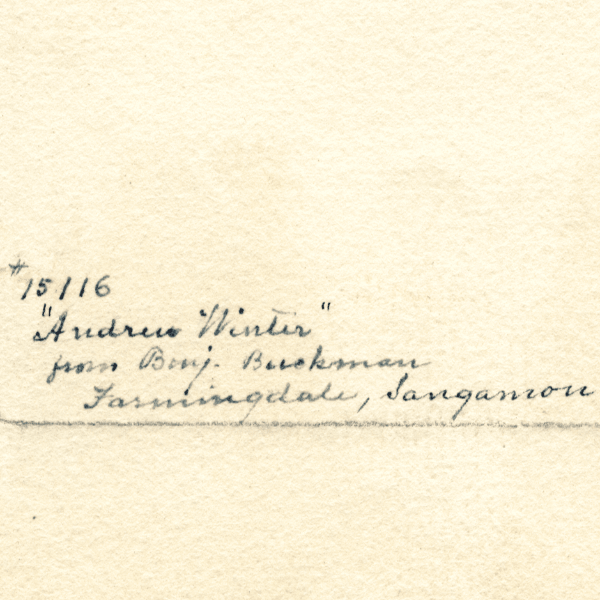 #15116
"Andrew Winter"
from Benj. Buckman
Farmingdale, Sangamon